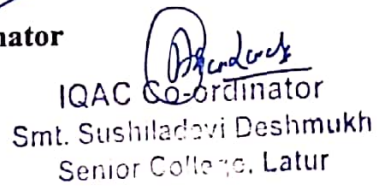 nator
IQAC Co-ordinator
Smt. Sushiladevi Deshmukh
Senior College, Latur